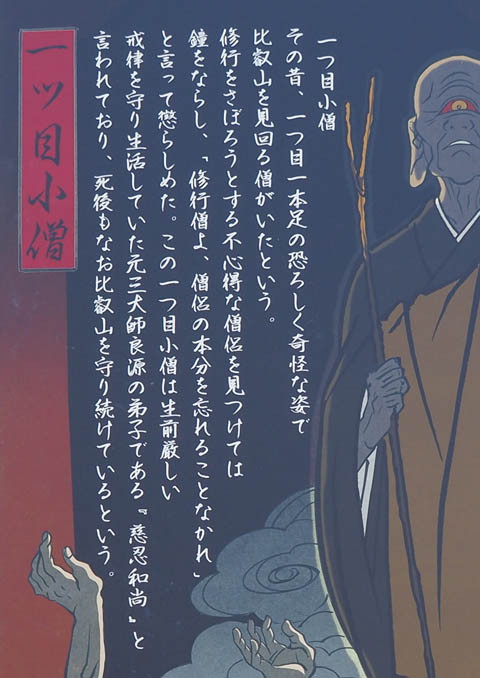 一つ目小僧
その昔、一つ目一本足の恐ろしく奇怪な姿で
比叡山を見回る僧がいたという。
修行をさぼろうとする不心得な僧侶を見つけては
鐘をならし、「修行僧よ、僧侶の本分を忘れることなかれ」
と言って懲らしめた。この一つ目小僧は生前厳しい
戒律を守り生活していた元三大師良源の弟子である『慈忍和尚』と
言われており、死後もなお比叡山を守り続けているという。
一ッ目小僧